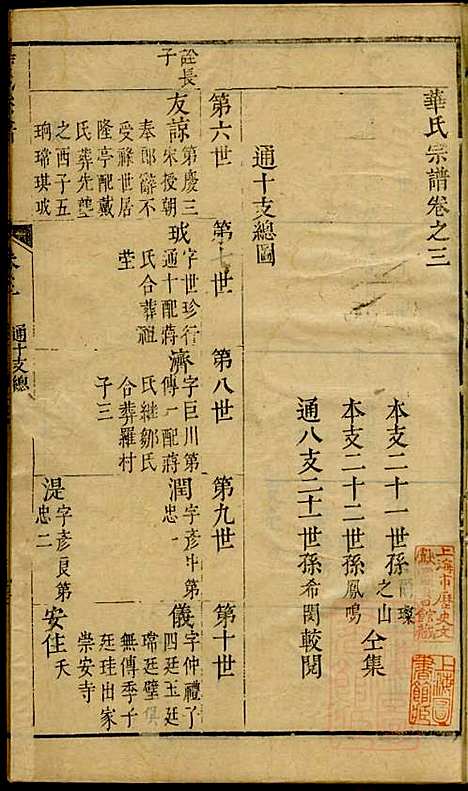 華氏宗譜卷之三
本支二十一世孫
之山
璨
本支二十二世孫鳳鳴
仝集
通八支二十一世孫希閔較閱
通十支總圖
第六世
第七世
第八世
第九世
第十世
詮長
子
友諒
第慶三
宋授朝
奉郎辭不
受祿世居
隆亭配戴
氏葬先塋
之西子五
珦瑺琪珬
珬
字世珍行
通十配蔣
氏合葬祖
塋
濟
字巨川第
傳一配蔣
氏繼鄒氏
合葬羅村
子三
潤
字彥中第
忠一
儀
字仲禮子
四廷玉廷
瑺廷璧俱
無傳季子
廷珪出家
崇安寺
湜
字彥良第
忠二
安住
夭
通十支總
上海市歷史文
獻圖書館藏
上海圖
書館藏